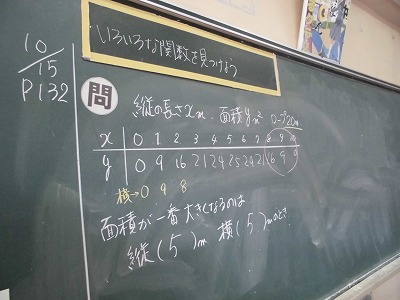 10/15
P132
いろいろな関数を見つけよう
問
縦の長さxm 面積ym² ロープ20m
x 0 1 2 3 4 5 6 7 8 9 10
y 0 9 16 21 24 25 24 21 16 9 0
横→0 9 8
面積が一番大きくなるのは
縦(5)m 横(5)mのとき